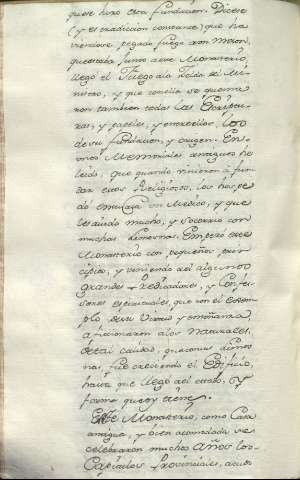 quese hizo esta fundacion. Dicese
(y es tradicion comun) que ha
viendose pegado fuego a un Meson,
que estaba junto a este Monasterio,
llego el Fuego a la Celda del Mi-
nistro, y que en ella se quema
ron tambien todas las Escriptu-
ras, y papeles, y entre ellos los
de su fundacion, y origen. En
unos Memoriales antiguos he
leido, que quando vinieron a fun
dar estos Religiosos, los hospe
dó en su casa un Medico, y que
les ayudo mucho, y socorrio con
muchas limosnas. Empezó este
Monasterio con pequeños prin
cipios, y viniendo a el algunos
grandes Predicadores, y Confe-
sores espirituales, que con el exem
plo de su virtud y enseñanza,
aficionaron a los Naturales,
de tal calidad, que con sus limos
nas, fue creciendo el Edificio,
hasta que llego a el estado, y
forma que oy tiene.
Este Monasterio, como Casa
antigua, y bien acomodada se
celebraron muchos años los
Capitulos Provinciales,